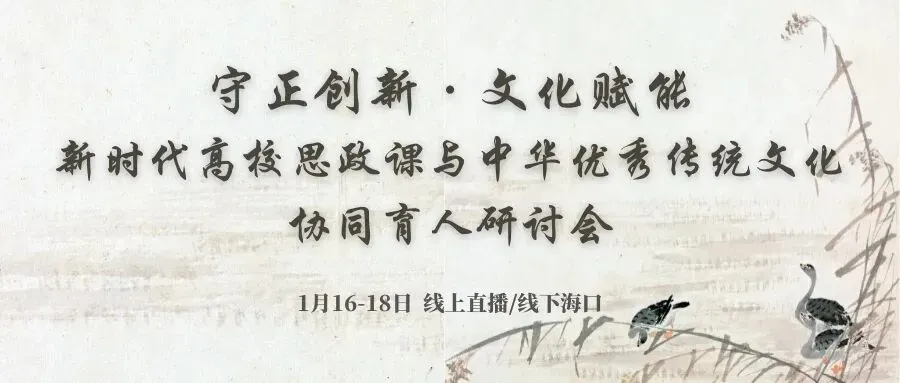 守正创新·文化赋能
新时代高校思政课与中华优秀传统文化
协同育人研讨会
1月16-18日 线上直播/线下海口